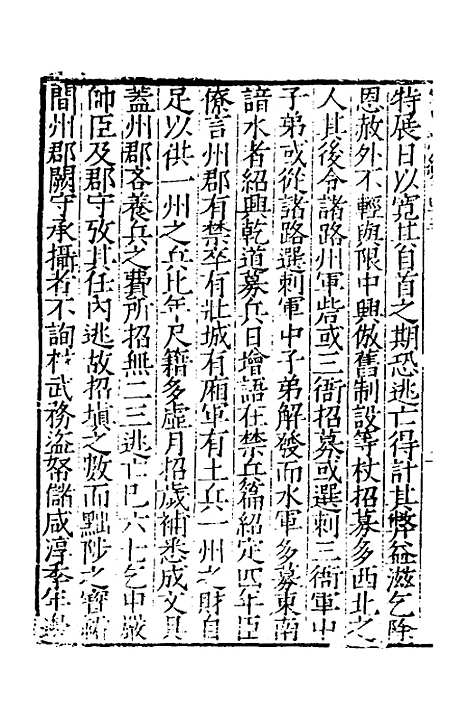 特展日以寬其自首之期恐逃亡得計其弊益滋乞除
恩赦外不輕與限中興倣舊制設等杖招募多西北之
人其後令諸路州軍砦或三衙招募或選刺三衙軍中
子弟或從諸路選刺軍中子弟解發而水軍多募東南
諳水者紹興乾道募兵日增語在禁兵篇紹定四年臣
僚言州郡有禁卒有壯城有廂軍有土兵一州之財自
足以供一州之兵比年尺籍多虛月招歲補悉成文具
蓋州郡吝養兵之費所招無二三逃亡巳六七乞申嚴
帥臣及郡守攷其任內逃故招塡之數而黜陟之寶祐
間州郡闕守承攝者不詢材武務盜帑儲咸淳季年